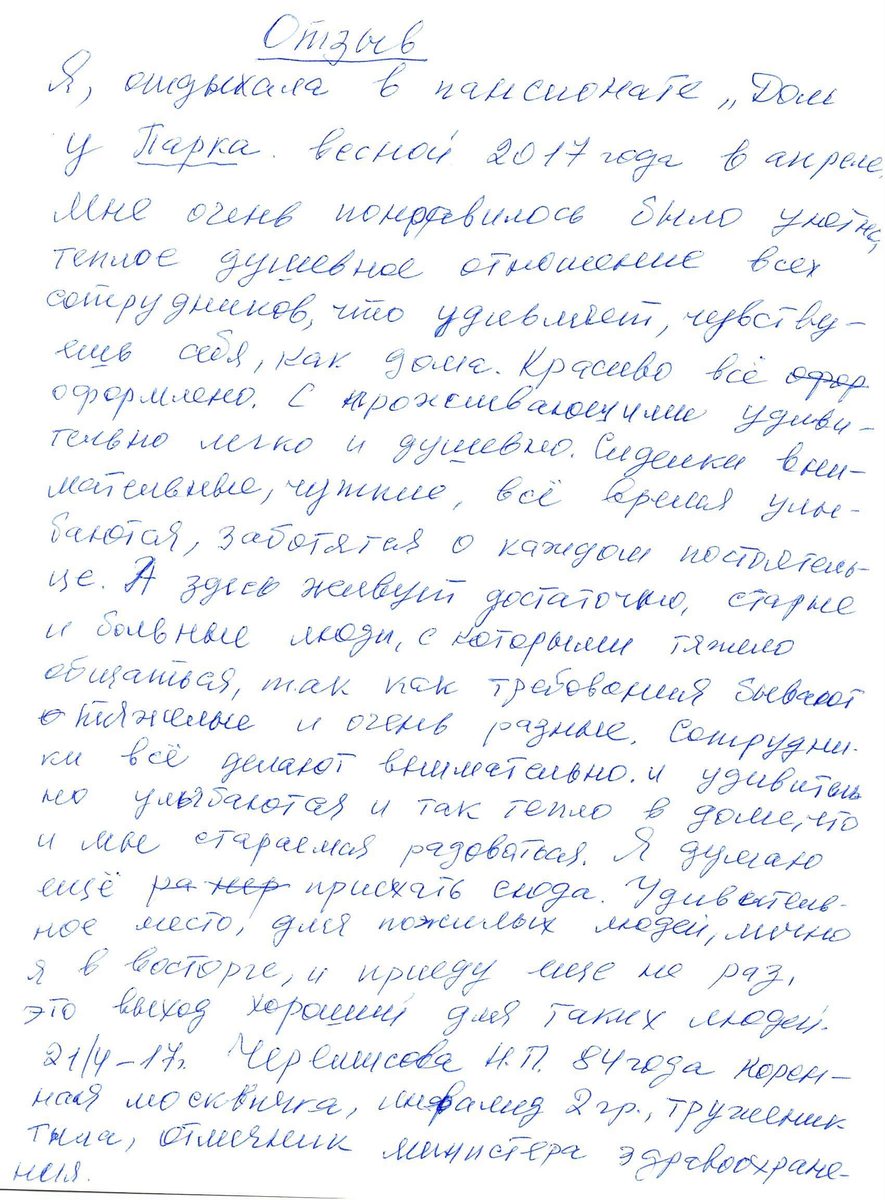 Отзыв
Я, отдыхала в пансионате „Дом
у Парка. весной 2017 года в апреле,
мне очень понравилось было уютно,
теплое душевное отношение всех
сотрудников, что удивляет, чувству-
ешь себя, как дома. Красиво всё офор
оформлено. С проживающими удиви-
тельно легко и душевно. Сиделки вни-
мательные, чуткие, всё время улы-
баются, заботятся о каждом постоятель-
це. А здесь живут достаточно, старые
и больные люди, с которыми тяжело
общаться, так как требования бывают
тяжелые и очень разные. Сотрудни-
ки всё делают внимательно. и удивитель
но улыбаются и так тепло в доме, что
и мы стараемся радоваться. Я думаю
ещё приехать сюда. Удивитель-
ное место, для пожилых людей, лично
я в восторге, и приеду еще не раз,
это выход хороший для таких людей.
21/4-17г. Н.П. 84 года корен-
ная москвичка, инвалид 2 гр., труженик
тыла, отличник министера здравоохране-
ния.